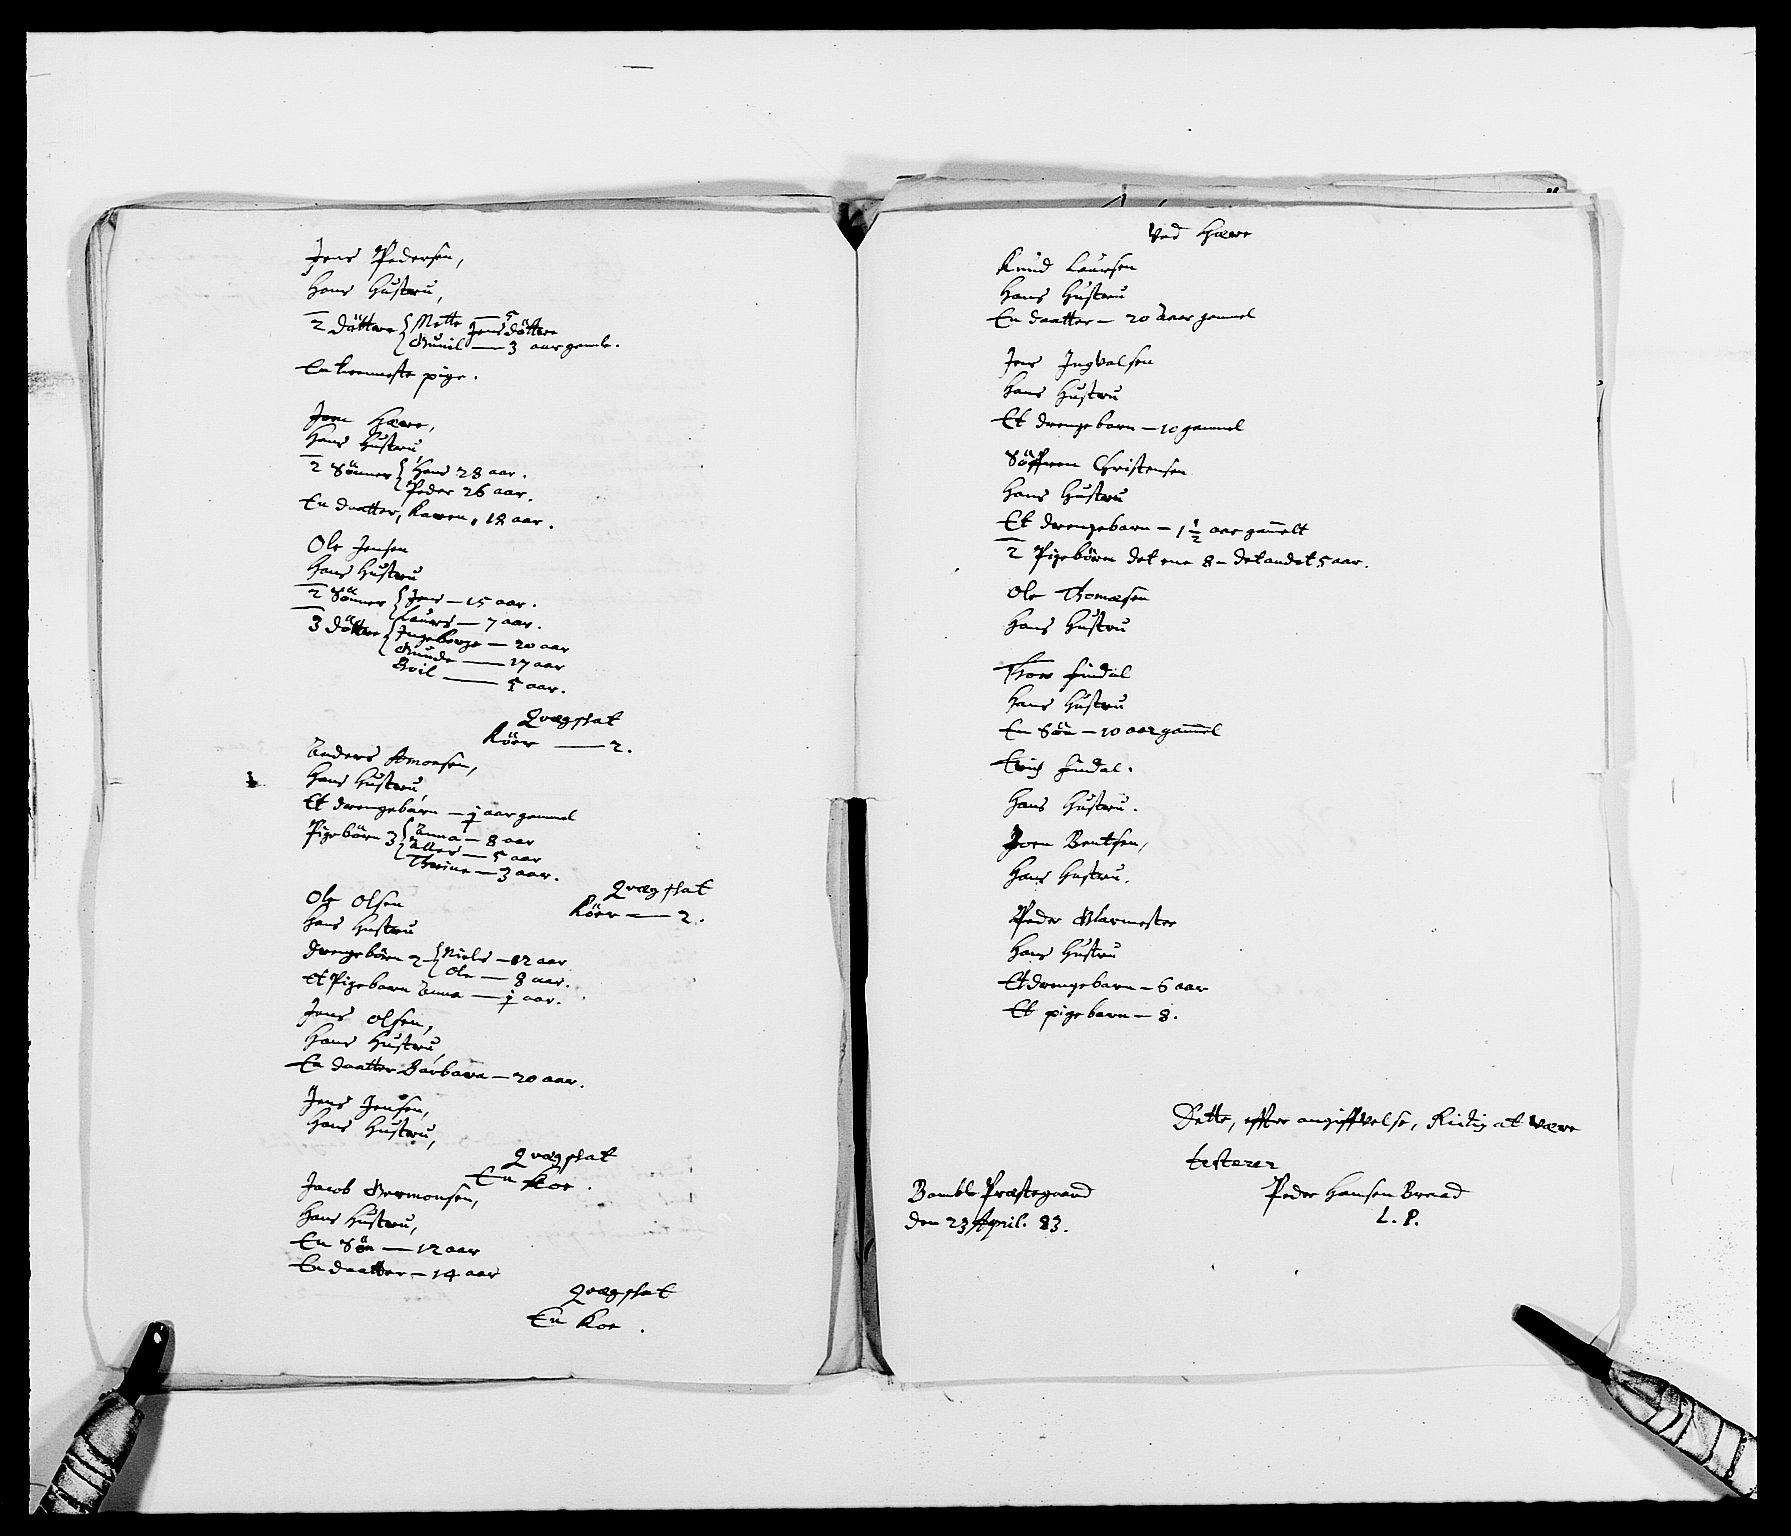 Jens Pedersen,
Hans Hustru,
2 döttre { Mette Jens döttre 5
Gunil — 3 aar gamle.
En tienneste pige.
Jren Hærre,
Hans Hustru,
2 Sönner { Hans 28 aar.
Peder 26 aar.
En daatter, Karren, 18 aar.
Ole Jensen
Hans Hustru
2 Sönner { Jens — 15 aar.
Laurs — 7 aar.
3 döttre { Ingeborge — 20 aar
Gunde — 17 aar
Boil — 5 aar.
Qvægskat
Köer — 2.
Anders Amonsen,
Hans Hustru,
Et drengebarn — 1 aar gammel
Pigebörn 3 { Anna — 8 aar
Aller — 5 aar
Thrine — 3 aar.
Qvægskat
Köer — 2.
Ole Olsen
Hans Hustru
Drengebörn 2 { Niels — 12 aar
Ole — 8 aar.
Et Pigebarn Anna — 1 aar.
Jens Olsen,
Hans Hustru,
En daatter Barbara — 20 aar.
Jens Jensen,
Hans Hustru,
Qvægskat
En Koe.
Jacob Germonsen,
Hans Hustru,
En Sön — 12 aar
En daatter — 14 aar
Qvægskat
En Koe.
Ved Hærre
Knud Laursen
Hans Hustru
En daatter — 20 aar gammel
Jens Ingvalsen
Hans Hustru
Et drengebarn — 10 gammel
Söffren Christensen
Hans Hustru
Et drengebarn — 1 1/2 aar gammelt
2 Pigebörn det ene 8 — det andet 5 aar.
Ole Thomæsen
Hans Hustru
Thor Findal
Hans Hustru
En Sön — 10 aar gammel
Erich Findal.
Hans Hustru.
Joen Bentsen,
Hans Hustru.
Peder Glarmester
Hans Hustru
Et drengebarn — 6 aar
Et pigebarn — 8.
Dette, effter angiffvelse, Rictig at være
testerer
Bamble Præstegaard
den 23 April. 83.
Peder Hansen Braad
L. P.